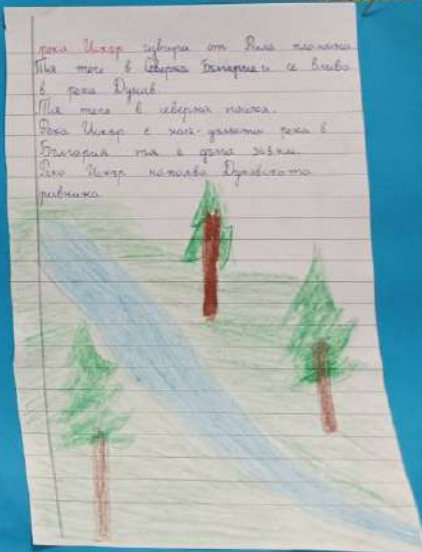 река Искър извира от Рила планина.
Тя тече в Северна България и се влива
в река Дунав.
Тя тече в северна посока.
Река Искър е най-дългата река в
България тя е дълга 368 км.
Река Искър напоява Дунавската
равнина.